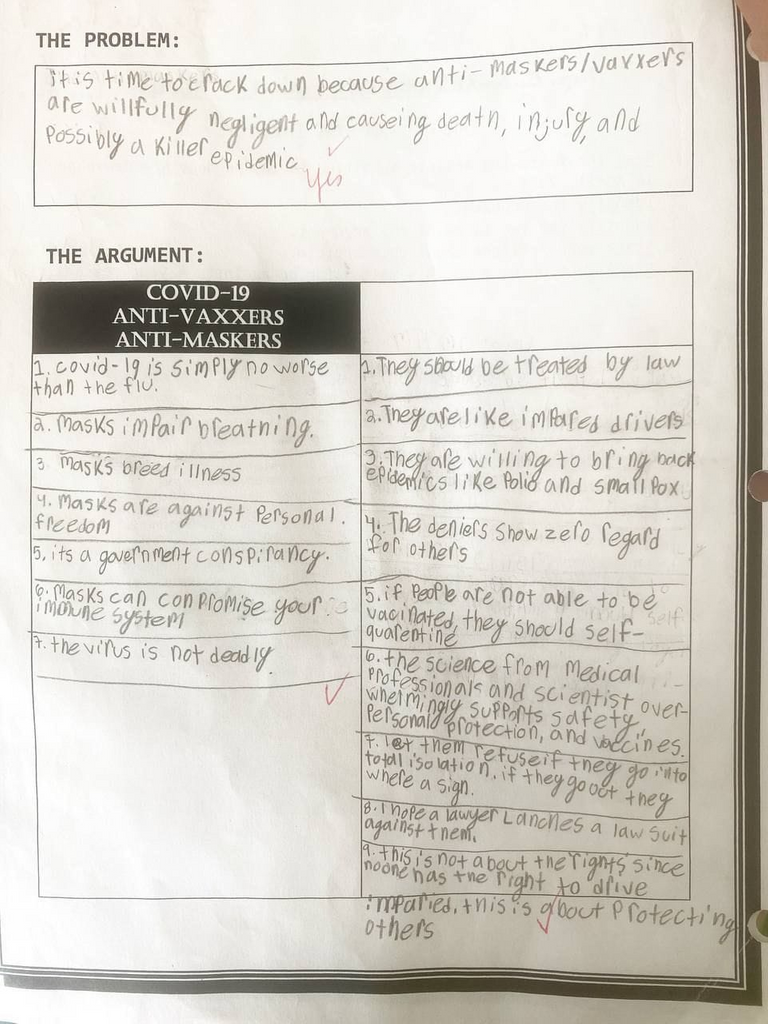 THE PROBLEM:
it is time to crack down because anti-maskers/vaxxers
are willfully negligent and causeing death, injury, and
Possibly a killer epidemic
yes
THE ARGUMENT:
COVID-19
ANTI-VAXXERS
ANTI-MASKERS
1. covid-19 is simply no worse
than the flu.
2. Masks impair breathing.
3 Masks breed illness
4. Masks are against Personal.
freedom
5. its a government conspirancy.
6. Masks can conpromise your
immune system
7. the virus is not deadly
1. They should be treated by law
2. They are like impared drivers
3. They are willing to bring back
epidemics like Polio and small Pox
4. The deniers show zero regard
for others
5. if People are not able to be
vacinated, they should self-
quarentine
6. the science from Medical
Professionals and scientist over-
whelmingly supports safety,
Personal protection, and vaccines.
7. let them refuse if they go into
total isolation. if they go out they
where a sign.
8. I hope a lawyer Lanches a law suit
against them.
9. this is not about the rights since
noone has the right to drive
imparied, this is about Protecting
others